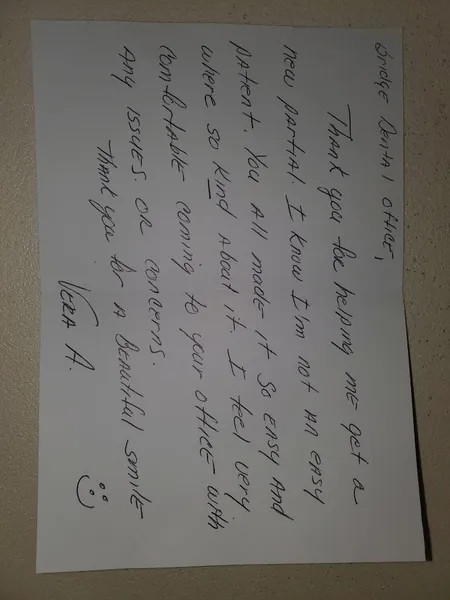 Bridge Dental office,
Thank you for helping me get a
new partial. I know I'm not an easy
patient. You all made it so easy and
where so kind about it. I feel very
comfortable coming to your office with
any issues. or concerns.
Thank you for a beautiful smile
Vera A.